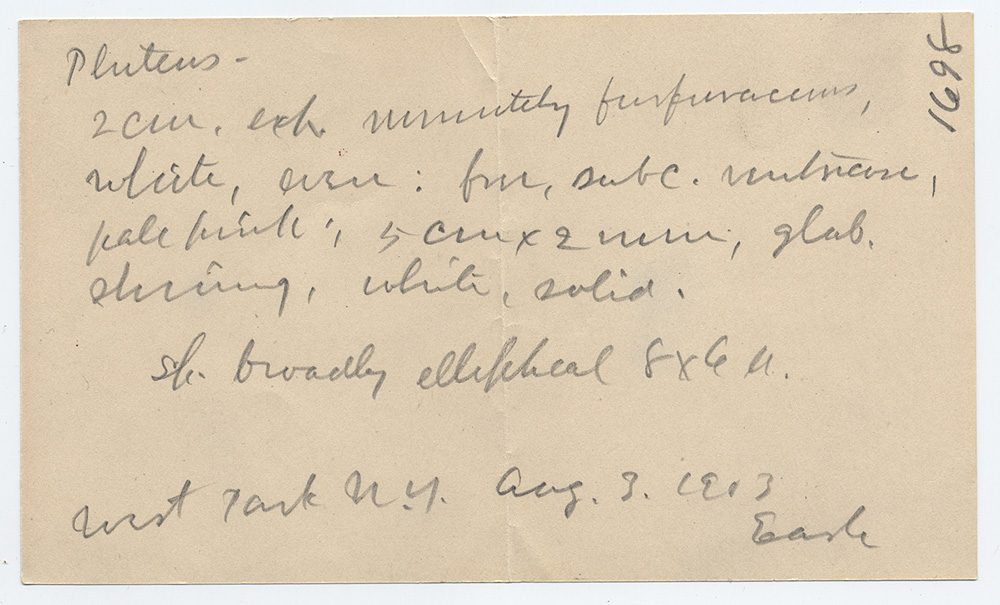 Pluteus -
2 cm. exp. minutely furfuraceous,
white, even : free, subc. ventricose,
pale pink ; 5 cm x 2 mm, glab.
shining, white, solid.
sp. broadly elliptical 8x6 µ.
West Park N.Y. Aug. 3. 1903
Earle
1695